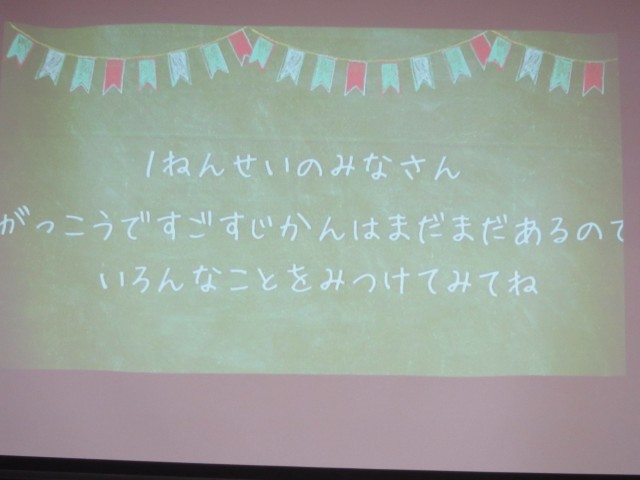 1ねんせいのみなさん
がっこうですごすじかんはまだまだあるので
いろんなことをみつけてみてね